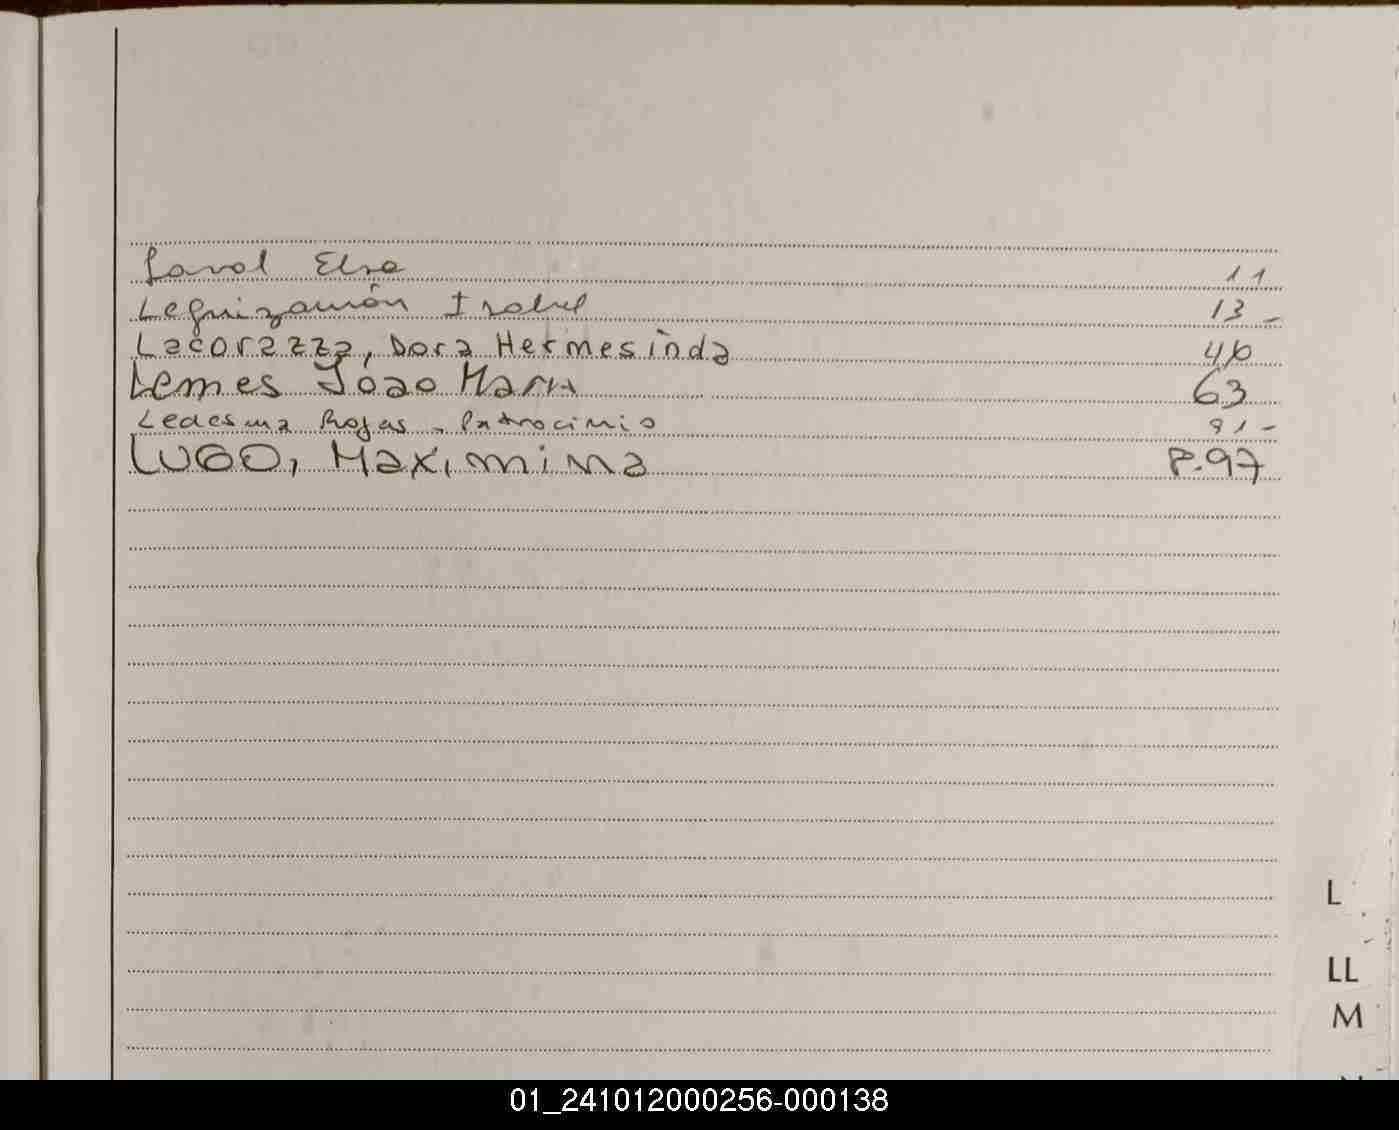 Laval Elsa 11
Leguizamón Isabel 13 -
Lacorazza, Dora Hermesinda 46
Lemes Joao Maria 63
Ledesma Rojas - Patrocinio 91 -
LUGO, Maximina P.97
L
LL
M
01_241012000256-000138